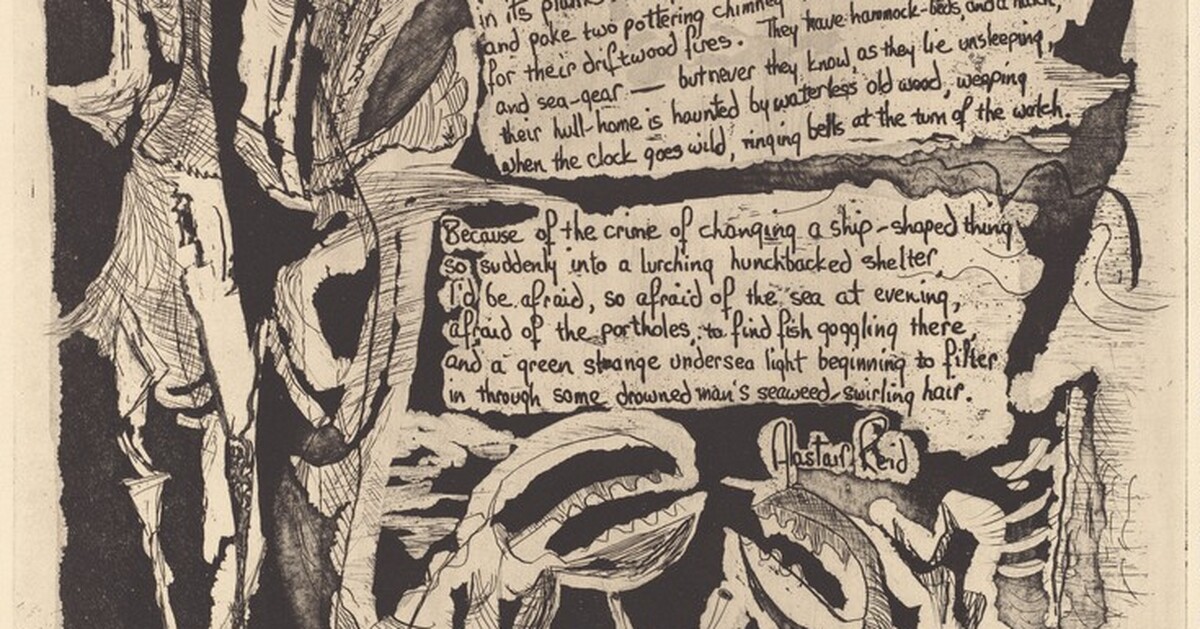 in its
and poke two pottering chimney
for their driftwood fires. They have hammock-beds, and a
and sea-gear — but never they know as they lie unsleeping,
their hull-home is haunted by waterless old wood, weeping
when the clock goes wild, ringing bells at the turn of the watch.
Because of the crime of changing a ship-shaped thing
so suddenly into a lurching hunchbacked shelter
I'd be afraid, so afraid of the sea at evening,
afraid of the portholes, to find fish goggling there,
and a green strange undersea light beginning to filter
in through some drowned man's seaweed-swirling hair.
Alastair Reid